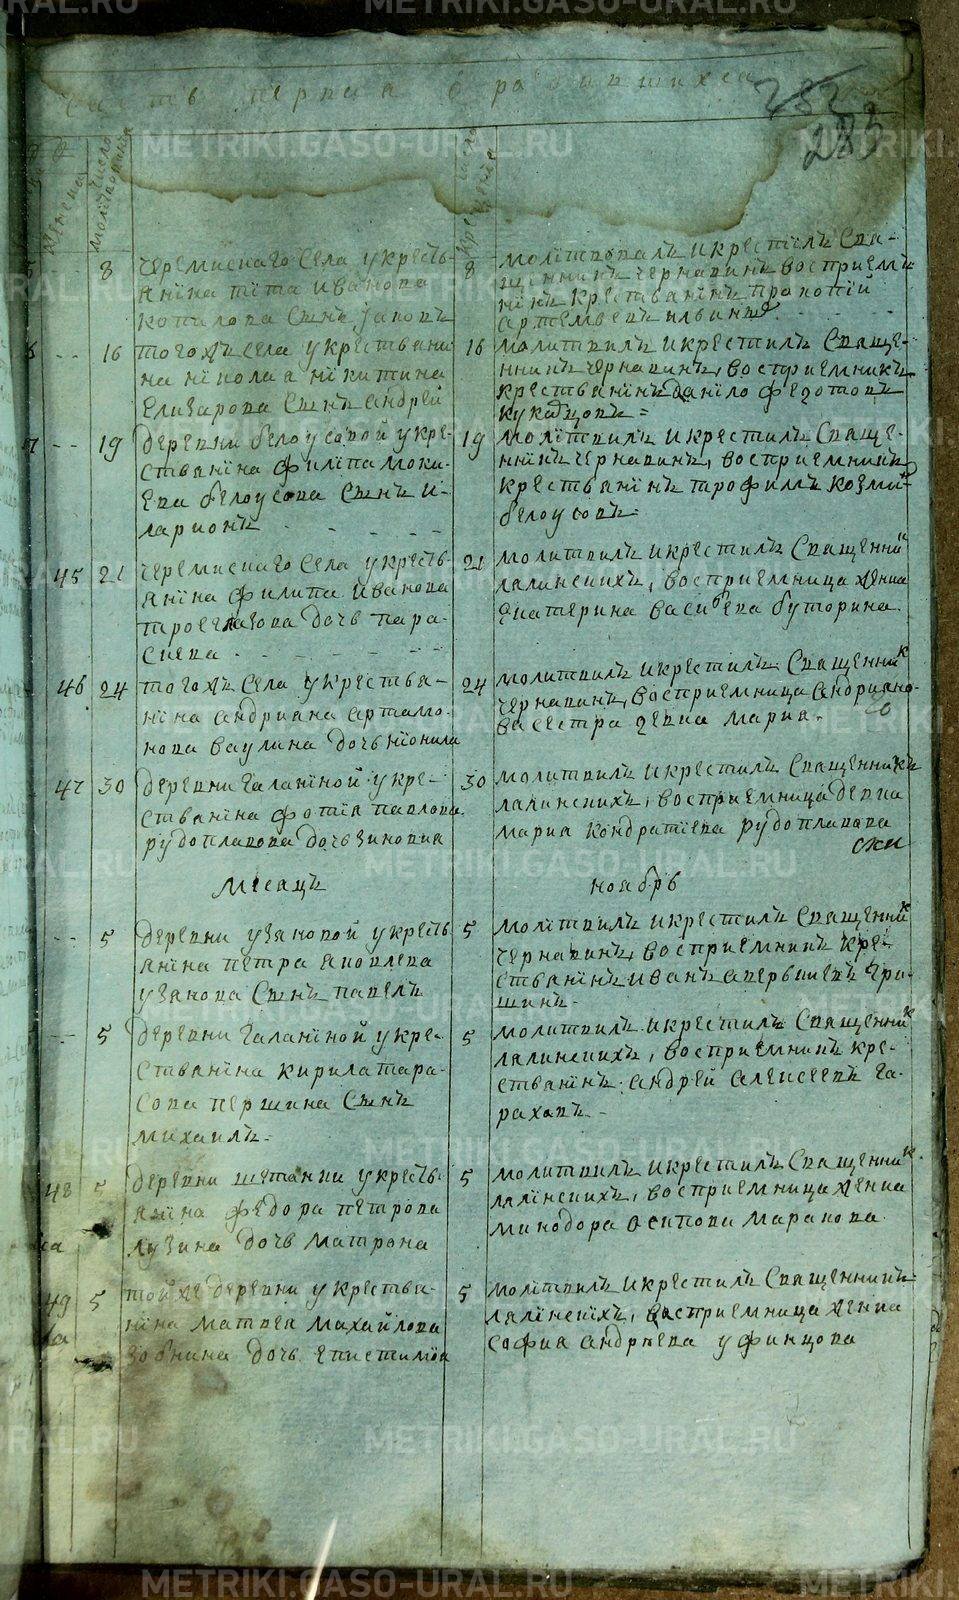 Часть первая о родившихся
252
283
женска
число
молитвован
крещение
8
черемискаго села у кресть-
янина тита иванова
копилова сынъ iаковъ
8
молiтвовалъ и крестiлъ свя-
щенникъ чернавинъ восприем-
нiкъ крестьянiнъ пракопiй
артемьевъ ильинъ
16
тогожъ села у крестьяни-
на нiколая нiкитина
елизарова сынъ андрей
16
молитвилъ и крестилъ свяще-
нникъ чернавинъ, восприемникъ
крестьянiнъ данiло федотовъ
19
деревни белоусовой у кре-
стьянiна филiпа моки-
ева белоусова сынъ и-
ларионъ
19
молiтвилъ и крестилъ свяще-
ннiкъ чернавинъ, восприемникъ
крестьянiнъ трофимъ козми-
белоусовъ
45
21
черемискаго села у кресть-
янiна филипа иванова
троеглазова дочь пара-
скева
21
молитвилъ и крестилъ священник
лялинскихъ, восприемница женка
екатерина васильева буторина
46
24
тогожъ села у крестья-
нина андриана артамо-
нова ваулина дочь нiонила
24
молитвилъ и крестилъ священник
чернавинъ, восприемница андриано-
ва сестра девка мария
47
30
деревни галанiной у кре-
стьянiна фотiя павлова
рудоплавова дочь зиновия
30
молитвилъ и крестилъ священникъ
лялинскихъ, восприемница девка
мария кондратiева рудоплавова
мiсяцъ
ноябрь
5
деревни узяновой у кресть
янiна петра яковлева
узянова сынъ павелъ
5
молiтвилъ и крестилъ священник
чернавинъ, восприемникъ кре-
стьянiнъ иванъ аверкиевъ гри-
шинъ
5
деревни галанiной у кре-
стьянiна кирила тара-
сова першина сынъ
михаилъ
5
молитвилъ и крестилъ священник
лялинскихъ, восприемникъ кре-
стьянiнъ андрей алексеевъ га-
раховъ
48
5
деревни шетанки у кресть-
янiна федора петрова
лузина дочь матрона
5
молитвилъ и крестилъ священник
лялiнскихъ, восприемница женка
минодора осипова маракова
49
5
тойже деревни у крестья-
нiна матвея михайлова
зобнина дочь епистимiя
5
молiтвилъ и крестилъ священникъ
лялiнскiхъ, восприемница женка
софия андрiева уфинцова
METRIKI.GASO-URAL.RU